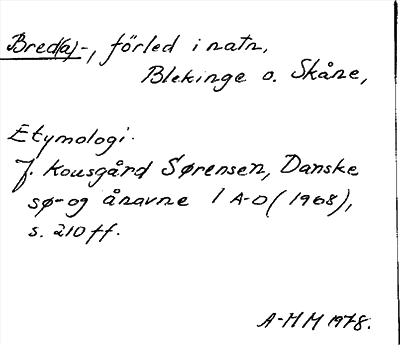 Bred(a)-, förled i natn,
Blekinge o. Skåne,
Etymologi.
J. Kousgård Sørensen, Danske
sø- og ånavne 1 A-D (1968),
s. 210 ff.
A-MM 1978.